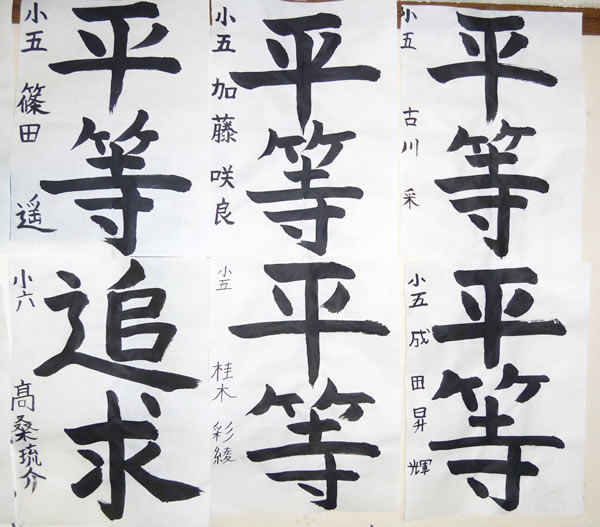 平等
小五 篠田 遥
平等
小五 加藤 咲良
平等
小五 古川 采
追求
小六 髙桑琉介
平等
小五 桂木 彩綾
平等
小五 成田昇輝